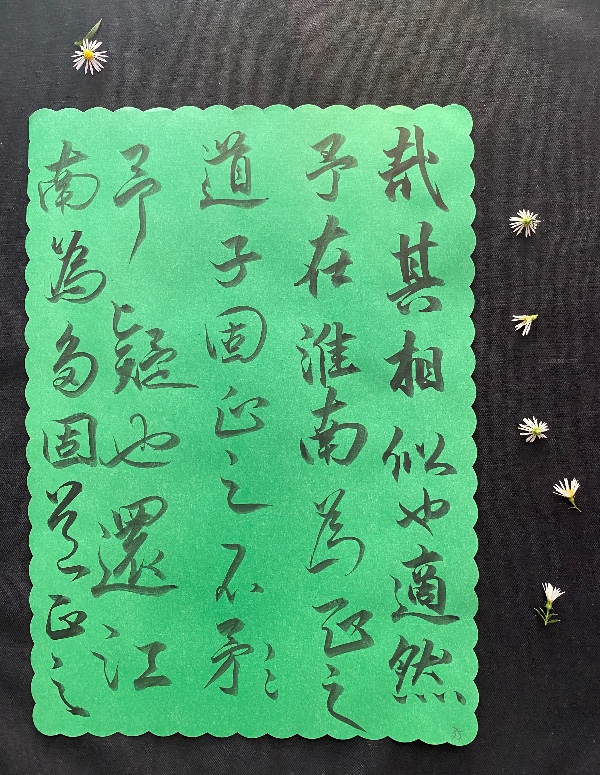 哉其相似也適然
予在淮南為正之
道子固正之不矛
予疑也還江
南為多固道正之
35